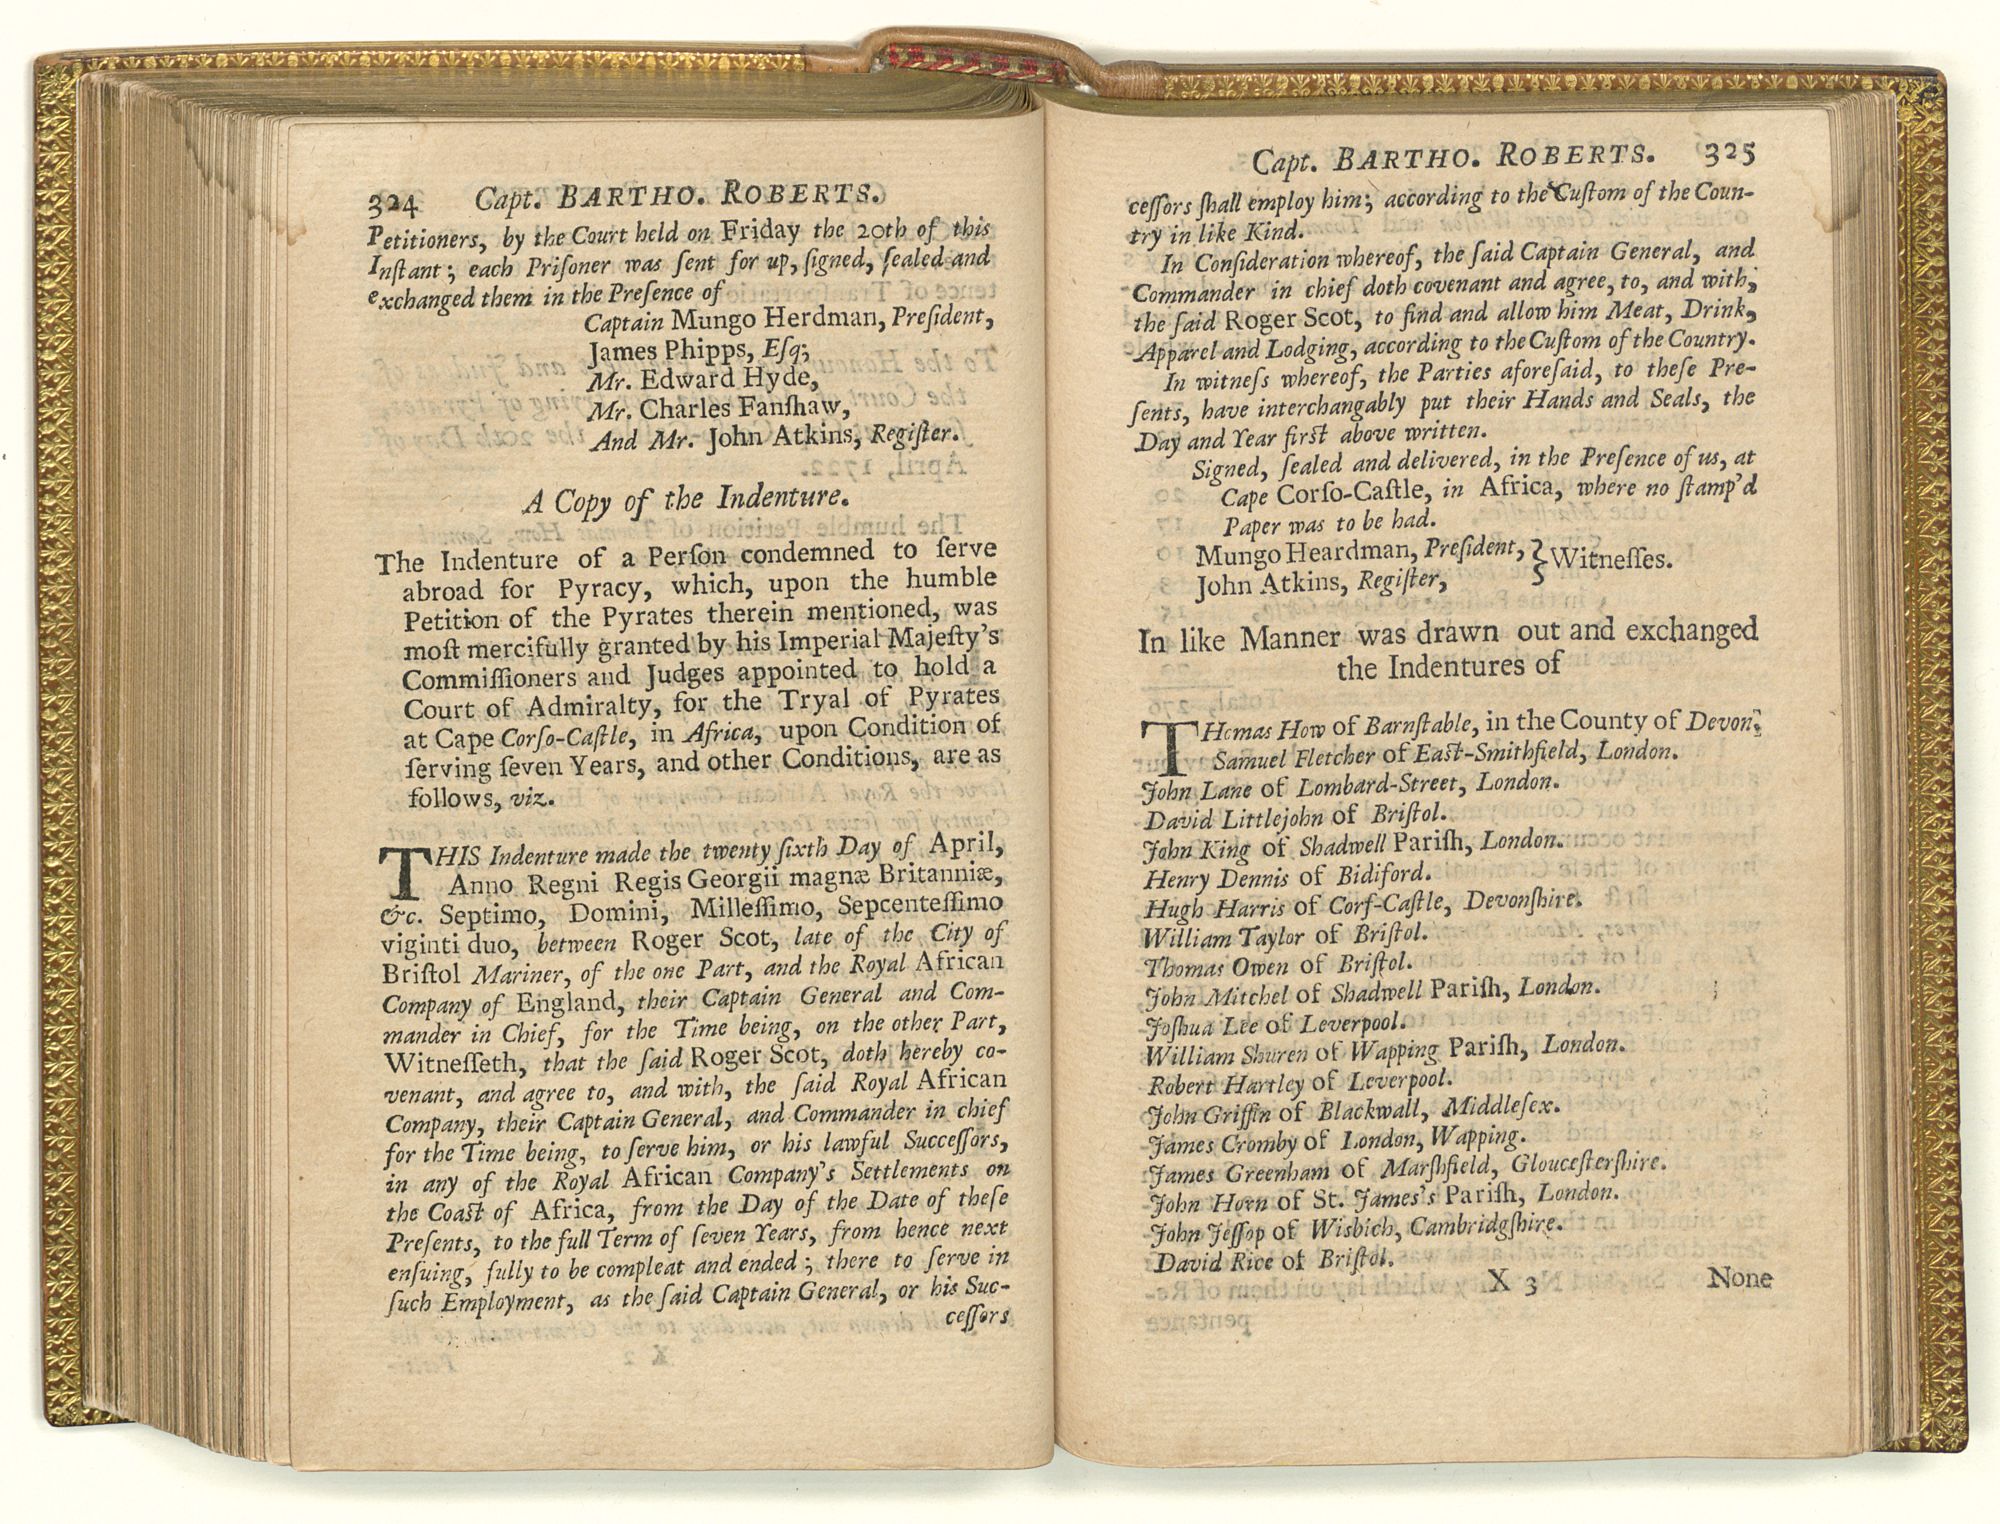 324 Capt. BARTHO. ROBERTS.
Petitioners, by the Court held on Friday the 20th of this
Inſtant; each Priſoner was ſent for up, ſigned, ſealed and
exchanged them in the Preſence of
Captain Mungo Herdman, Preſident,
James Phipps, Eſq;
Mr. Edward Hyde,
Mr. Charles Fanſhaw,
And Mr. John Atkins, Regiſter.
A Copy of the Indenture.
The Indenture of a Perſon condemned to ſerve
abroad for Pyracy, which, upon the humble
Petition of the Pyrates therein mentioned, was
moſt mercifully granted by his Imperial Majeſty's
Commiſſioners and Judges appointed to hold a
Court of Admiralty, for the Tryal of Pyrates
at Cape Corſo-Caſtle, in Africa, upon Condition of
ſerving ſeven Years, and other Conditions, are as
follows, viz.
THIS Indenture made the twenty ſixth Day of April,
Anno Regni Regis Georgii magnæ Britanniæ,
&c. Septimo, Domini, Milleſſimo, Sepcenteſſimo
viginti duo, between Roger Scot, late of the City of
Briſtol Mariner, of the one Part, and the Royal African
Company of England, their Captain General and Com-
mander in Chief, for the Time being, on the other Part,
Witneſſeth, that the ſaid Roger Scot, doth hereby co-
venant, and agree to, and with, the ſaid Royal African
Company, their Captain General, and Commander in chief
for the Time being, to ſerve him, or his lawful Succeſſors,
in any of the Royal African Company's Settlements on
the Coaſt of Africa, from the Day of the Date of theſe
Preſents, to the full Term of ſeven Years, from hence next
enſuing, fully to be compleat and ended; there to ſerve in
ſuch Employment, as the ſaid Captain General, or his Suc-
ceſſors
Capt. BARTHO. ROBERTS. 325
ceſſors ſhall employ him; according to the Cuſtom of the Coun-
try in like Kind.
In Conſideration whereof, the ſaid Captain General, and
Commander in chief doth covenant and agree, to, and with,
the ſaid Roger Scot, to find and allow him Meat, Drink,
Apparel and Lodging, according to the Cuſtom of the Country.
In witneſs whereof, the Parties aforeſaid, to theſe Pre-
ſents, have interchangably put their Hands and Seals, the
Day and Year firſt above written.
Signed, ſealed and delivered, in the Preſence of us, at
Cape Corſo-Caſtle, in Africa, where no ſtamp'd
Paper was to be had.
Mungo Heardman, Preſident, } Witneſſes.
John Atkins, Regiſter,
In like Manner was drawn out and exchanged
the Indentures of
THomas How of Barnſtable, in the County of Devon.
Samuel Fletcher of Eaſt-Smithfield, London.
John Lane of Lombard-Street, London.
David Littlejohn of Briſtol.
John King of Shadwell Pariſh, London.
Henry Dennis of Bidiford.
Hugh Harris of Corf-Caſtle, Devonſhire.
William Taylor of Briſtol.
Thomas Owen of Briſtol.
John Mitchel of Shadwell Pariſh, London.
Joſhua Lee of Leverpool.
William Shuren of Wapping Pariſh, London.
Robert Hartley of Leverpool.
John Griffin of Blackwall, Middleſex.
James Cromby of London, Wapping.
James Greenham of Marſhfield, Glouceſterſhire.
John Horn of St. James's Pariſh, London.
John Jeſſop of Wisbich, Cambridgſhire.
David Rice of Briſtol.
X 3 None